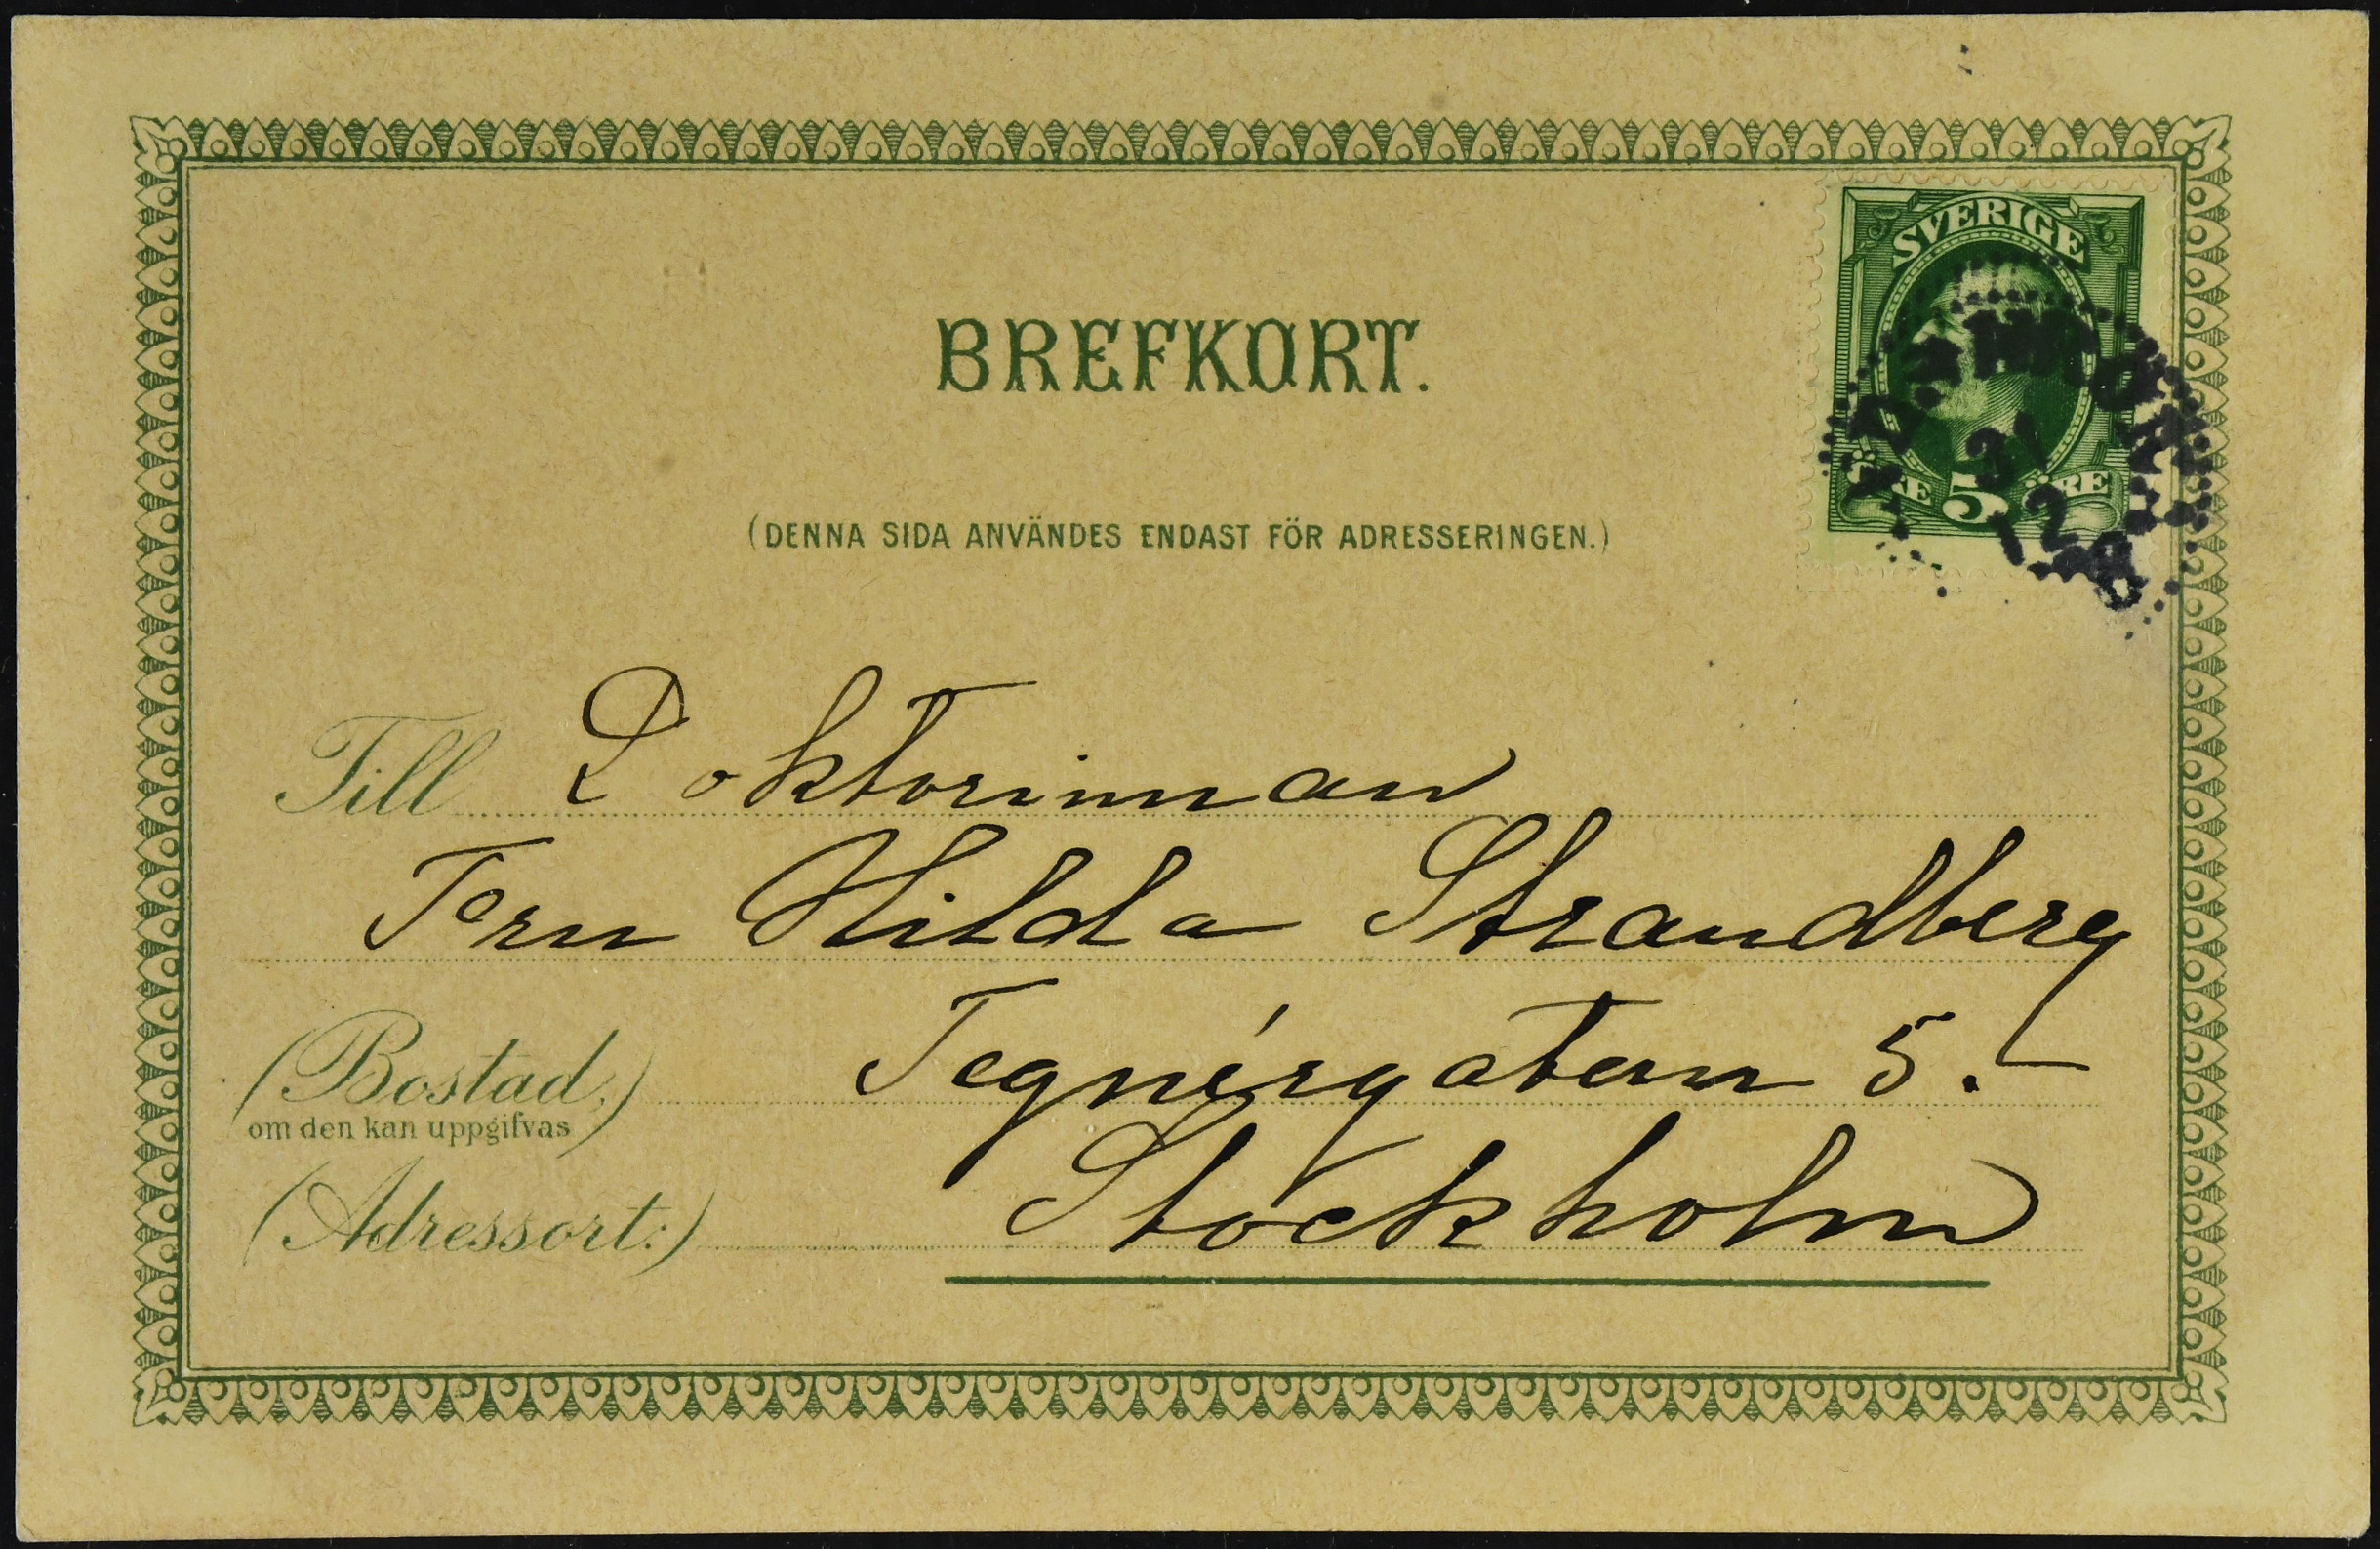 SVERIGE
BREFKORT.
ÖRE 5 ÖRE
31
12
(DENNA SIDA ANVÄNDES ENDAST FÖR ADRESSERINGEN.)
Till Doktorinnan
Fru Hilda Strandberg
(Bostad.) Tegnérgatan 5.
om den kan uppgifvas
(Adressort:) Stockholm